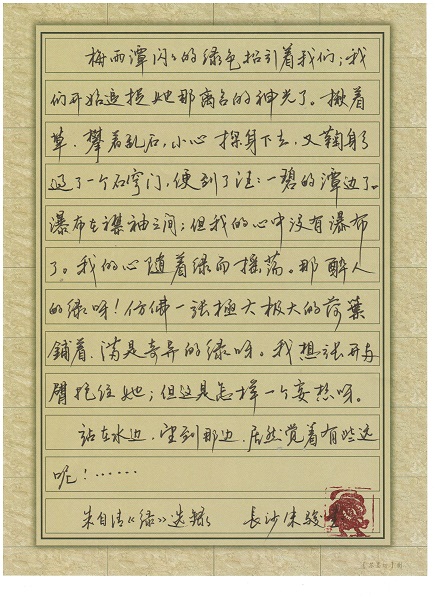 梅雨潭闪闪的绿色招引着我们；我
们开始追捉她那离合的神光了。揪着
草，攀着乱石，小心探身下去，又鞠躬
过了一个石穹门，便到了汪汪一碧的潭边了。
瀑布在襟袖之间；但我的心中没有瀑布
了。我的心随着绿而摇荡。那醉人
的绿呀！仿佛一张極大极大的荷葉
鋪着，满是奇异的绿呀。我想张开两
臂抱住她；但这是怎样一个妄想呀。
站在水边，望到那边，居然觉着有些远
呢！……
朱自清《绿》选録 長沙朱骏